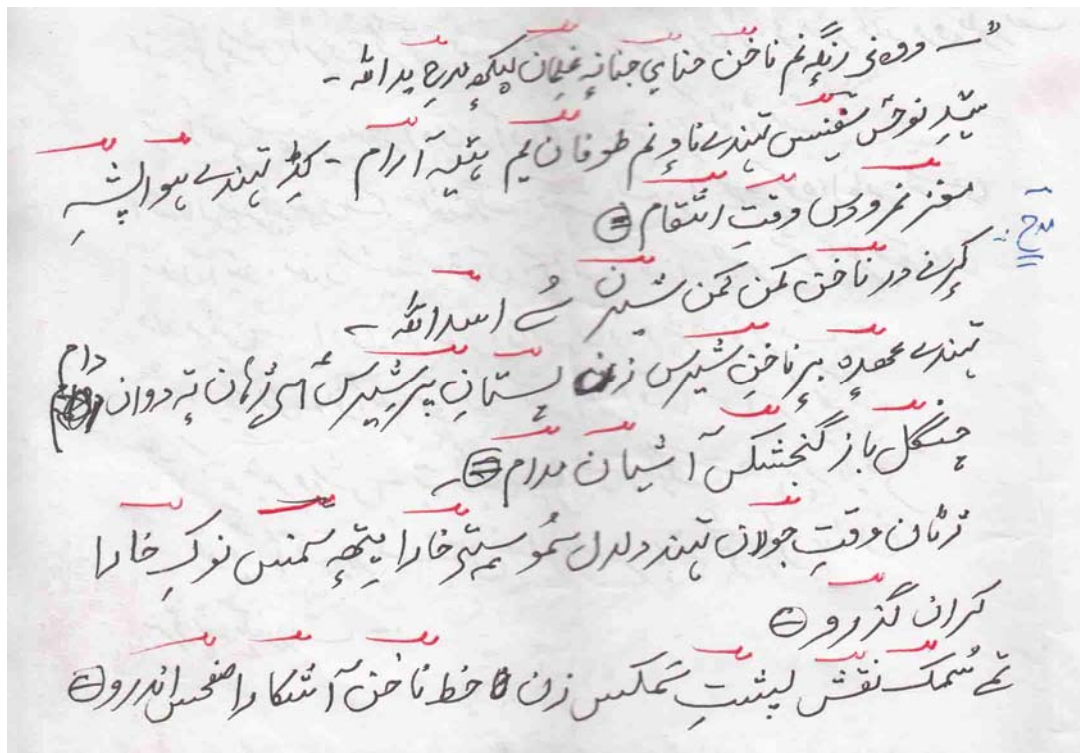 سُہ ووٚنی رنگہٕ نم ناخن حنایی جنانہٕ غِلمان لیکھہٕ مدحِ یداللہ ۔
سٔدِ نوحَس سفینس تہندے ناوٕ نم طوفان یم ہتیہٕ آرام ۔ کڈِ تہندے ہوا پشہٕ
مغز نمرودس وقتِ انتقام
مدح :-
کرنے در ناخن کمن کمن شیرن سُے اسداللہ ۔
تہندے عہدہٕ ببرِ ناخنِ شیرس زن پستانِ پیرِ شیرس أسی زُہان تہٕ دوان دام
چنگل باز گنجشکس آشیان مدام
ژٹان وقتِ جولان تہند دلدل سُمو ستۍ خارا یتھہٕ سمنس نوکِ خارا
کران گذرو
تمے سُمک نقش پشتِ سمکس زن خط ناخن آشکارا صفحس اندرو